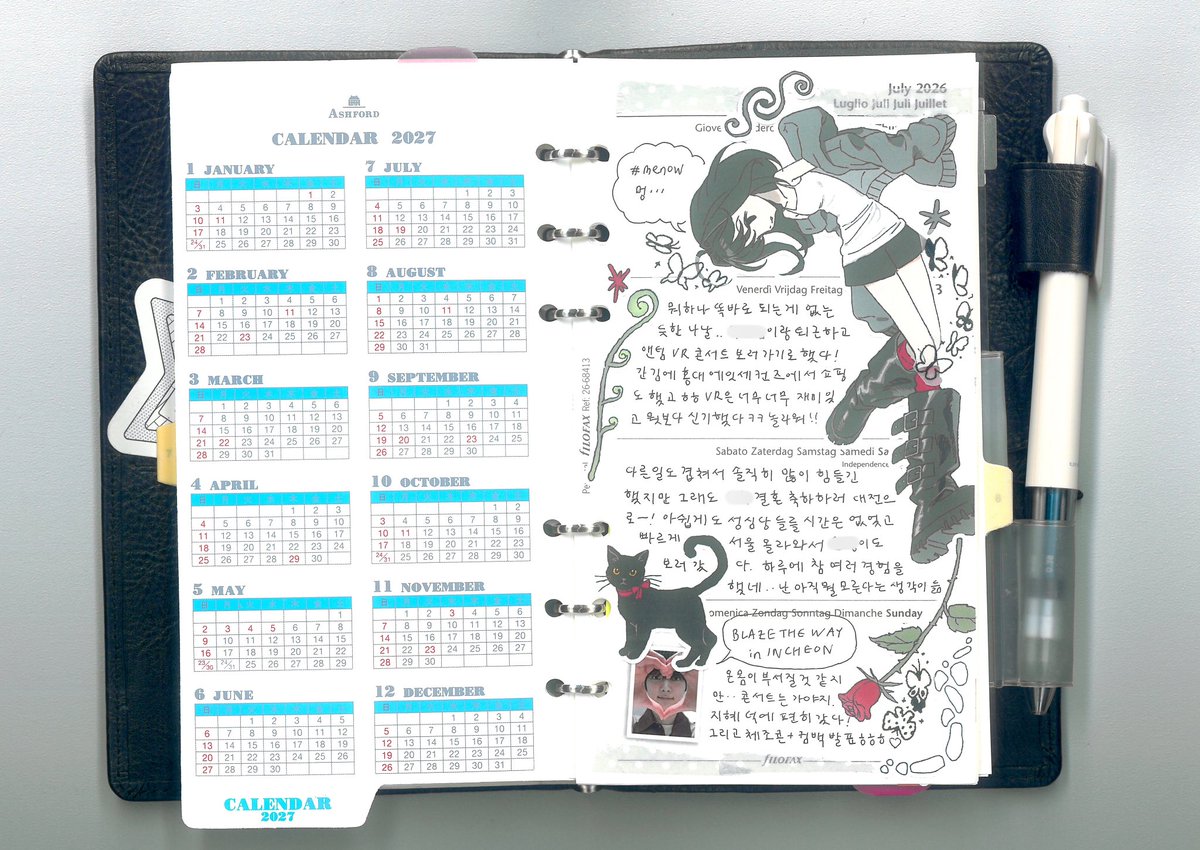 ASHFORD
CALENDAR 2027
1 JANUARY
日 月 火 水 木 金 土
1 2
3 4 5 6 7 8 9
10 11 12 13 14 15 16
17 18 19 20 21 22 23
24/31 25 26 27 28 29 30
2 FEBRUARY
日 月 火 水 木 金 土
1 2 3 4 5 6
7 8 9 10 11 12 13
14 15 16 17 18 19 20
21 22 23 24 25 26 27
28
3 MARCH
日 月 火 水 木 金 土
1 2 3 4 5 6
7 8 9 10 11 12 13
14 15 16 17 18 19 20
21 22 23 24 25 26 27
28 29 30 31
4 APRIL
日 月 火 水 木 金 土
1 2 3
4 5 6 7 8 9 10
11 12 13 14 15 16 17
18 19 20 21 22 23 24
25 26 27 28 29 30
5 MAY
日 月 火 水 木 金 土
1
2 3 4 5 6 7 8
9 10 11 12 13 14 15
16 17 18 19 20 21 22
23/30 24/31 25 26 27 28 29
6 JUNE
日 月 火 水 木 金 土
1 2 3 4 5
6 7 8 9 10 11 12
13 14 15 16 17 18 19
20 21 22 23 24 25 26
27 28 29 30
7 JULY
日 月 火 水 木 金 土
1 2 3
4 5 6 7 8 9 10
11 12 13 14 15 16 17
18 19 20 21 22 23 24
25 26 27 28 29 30 31
8 AUGUST
日 月 火 水 木 金 土
1 2 3 4 5 6 7
8 9 10 11 12 13 14
15 16 17 18 19 20 21
22 23 24 25 26 27 28
29 30 31
9 SEPTEMBER
日 月 火 水 木 金 土
1 2 3 4
5 6 7 8 9 10 11
12 13 14 15 16 17 18
19 20 21 22 23 24 25
26 27 28 29 30
10 OCTOBER
日 月 火 水 木 金 土
1 2
3 4 5 6 7 8 9
10 11 12 13 14 15 16
17 18 19 20 21 22 23
24/31 25 26 27 28 29 30
11 NOVEMBER
日 月 火 水 木 金 土
1 2 3 4 5 6
7 8 9 10 11 12 13
14 15 16 17 18 19 20
21 22 23 24 25 26 27
28 29 30
12 DECEMBER
日 月 火 水 木 金 土
1 2 3 4
5 6 7 8 9 10 11
12 13 14 15 16 17 18
19 20 21 22 23 24 25
26 27 28 29 30 31
CALENDAR
2027
July 2026
Luglio Juli Juli Juillet
Giove
#menow
멍...
3
Venerdì Vrijdag Freitag
뭐하나 똑바로 되는게 없는
듯한 나날.. 이랑 퇴근하고
앤팀 VR 콘서트 보러가기로 했다!
간김에 홍대 에잇세컨즈에서 쇼핑
도 했고 ㅎㅎ VR은 너무너무 재미있
고 뭣보다 신기했다 ㅋㅋ 놀라워!!
filofax Ref. 26-68413
Sabato Zaterdag Samstag Samedi Sa
Independence
다른일도 겹쳐서 솔직히 많이 힘들긴
했지만 그래도 결혼 축하하러 대전으
로ㅡ! 아쉽게도 성심당 들를 시간은 없었고
빠르게 서울 올라와서 이도
보러 갔다. 하루에 참 여러 경험을
했네.. 난 아직 뭘 모른다는 생각이 듦
omenica Zondag Sonntag Dimanche Sunday
BLAZE THE WAY
in INCHEON
온몸이 부서질 것 같지
만.. 콘서트는 가야지.
지혜 덕에 편히 갔다!
그리고 체조콘 + 컴백 발표 ㅎㅎㅎ
filofax